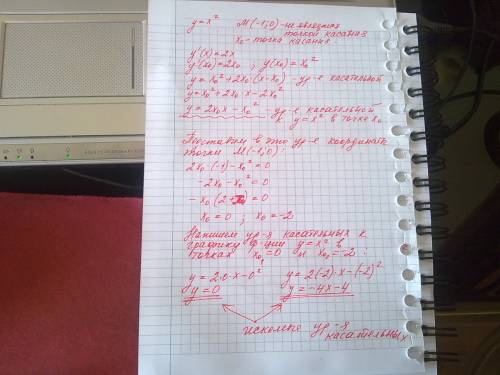 y = x² M(-1;0) - не является
точкой касания
x₀ - точка касания
y'(x) = 2x
y'(x₀) = 2x₀ ; y(x₀) = x₀²
y = x₀² + 2x₀(x - x₀) - ур-е касательной
y = x₀² + 2x₀x - 2x₀²
y = 2x₀x - x₀² - ур-е касательной
к y = x² в точке x₀
Подставим в это ур-е координаты
точки M(-1;0):
2x₀·(-1) - x₀² = 0
-2x₀ - x₀² = 0
-x₀(2+x₀) = 0
x₀ = 0 ; x₀ = -2
Напишем ур-я касательных к
графику ф-ции y = x² в
точках x₀₁ = 0 и x₀₂ = -2 :
y = 2·0·x - 0² y = 2(-2)·x - (-2)²
y = 0 y = -4x - 4
искомые ур-я
касательных